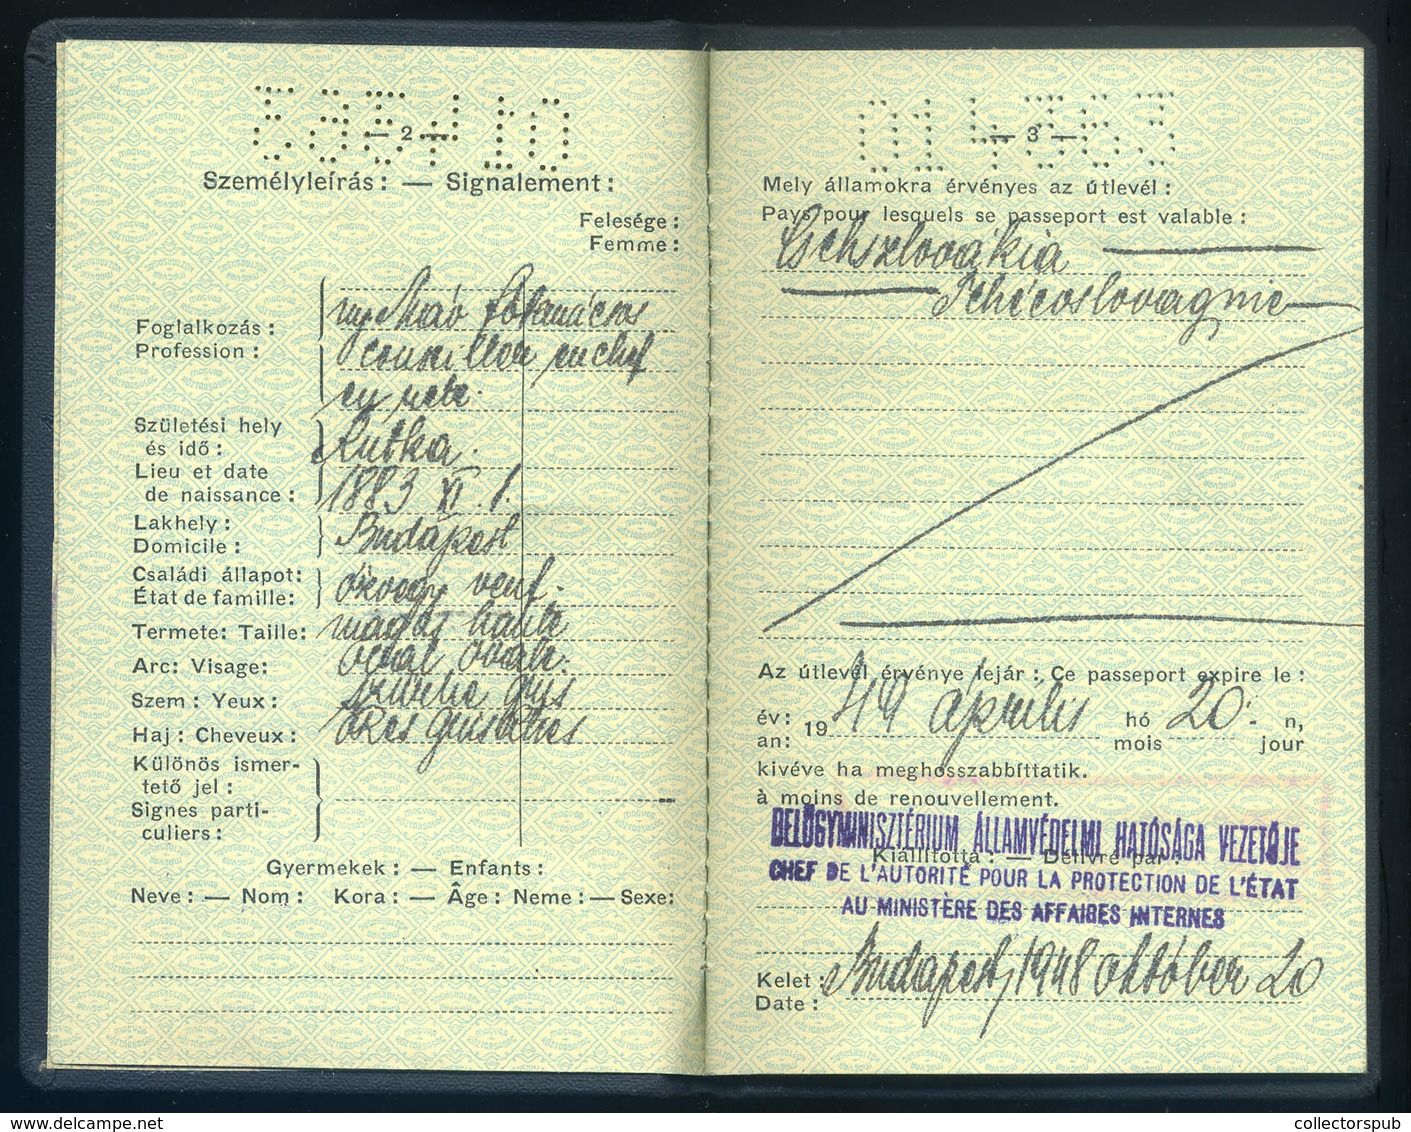 — 2 —
Személyleírás: — Signalement:
Felesége:
Femme:
Foglalkozás:
Profession:
ny. Máv főtanácsos
conseiller en chef
en retr.
Születési hely
és idő:
Lieu et date
de naissance:
Ruttka.
1883 XI. 1.
Lakhely:
Domicile:
Budapest
Családi állapot:
État de famille:
özvegy veuf.
Termete: Taille: magas haute
Arc: Visage: ovál ovale.
Szem: Yeux: szürke gris
Haj: Cheveux: őszes grisâtres
Különös ismer-
tető jel:
Signes parti-
culiers:
Gyermekek: — Enfants:
Neve: — Nom: Kora: — Âge: Neme: — Sexe:
014363
— 3 —
Mely államokra érvényes az útlevél:
Pays pour lesquels se passeport est valable:
Csehszlovákia
Tchécoslovaquie
Az útlevél érvénye lejár: Ce passeport expire le:
év: 1949 április hó 20. n,
an: mois jour
kivéve ha meghosszabbíttatik.
à moins de renouvellement.
BELÜGYMINISZTÉRIUM ÁLLAMVÉDELMI HATÓSÁGA VEZETŐJE
Kiállította: — Délivré par
CHEF DE L'AUTORITÉ POUR LA PROTECTION DE L'ÉTAT
AU MINISTÈRE DES AFFAIRES INTERNES
Kelet: Budapest, 1948 október 20
Date:
collectorspub.com